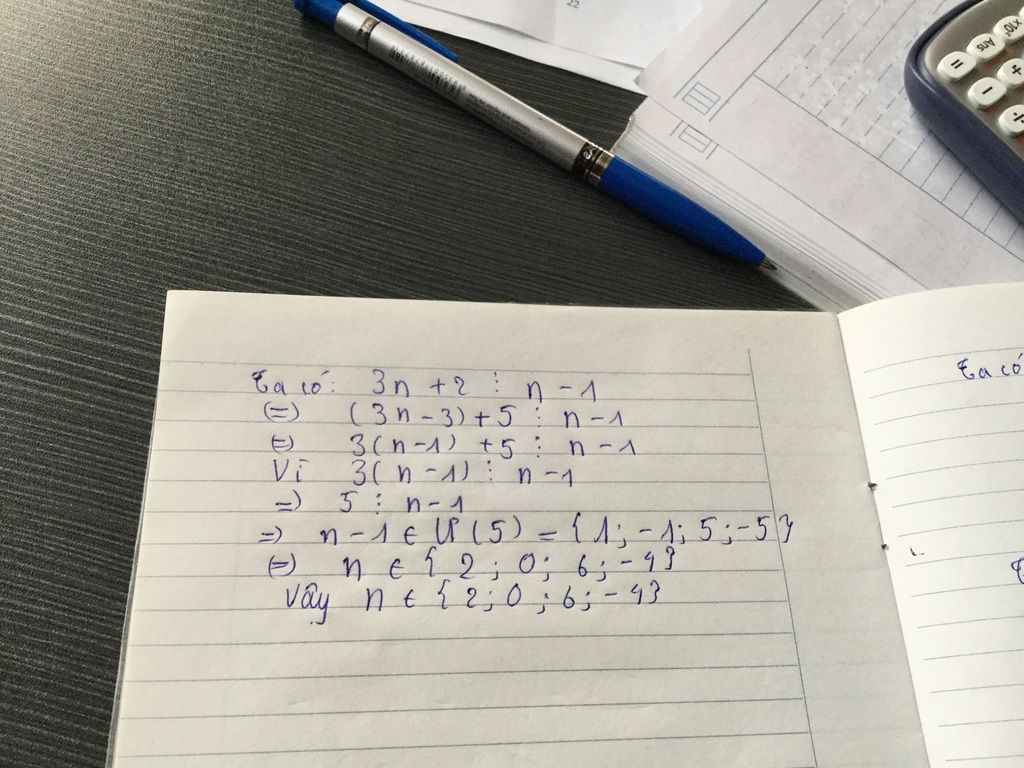 22
Ta có: 3n + 2 ⋮ n - 1
(=) (3n - 3) + 5 ⋮ n - 1
(=) 3(n-1) + 5 ⋮ n - 1
Vì 3(n-1) ⋮ n - 1
=) 5 ⋮ n - 1
=) n - 1 ∈ Ư(5) = {1; -1; 5; -5}
(=) n ∈ {2; 0; 6; -4}
Vậy n ∈ {2; 0; 6; -4}
Ta có
Ans
=
+
-
÷